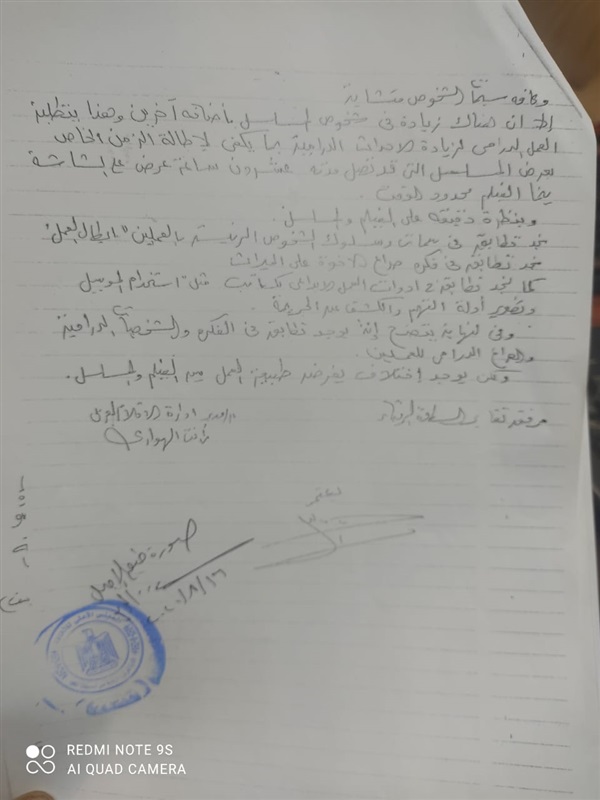 وكافة سمات الشخوص متشابهة
إلا أن هناك زيادة فى شخوص المسلسل بإضافة آخرين وهذا يتطلبه
العمل الدرامى لزيادة الاحداث الدرامية بما يكفى لإطالة الزمن الخاص
بعرض المسلسل التى قد تصل مدته عشرون ساعة عرض على الشاشة
بينما الفيلم محدود الوقت .
وبنظرة دقيقة على الفيلم والمسلسل .
نجد تطابق فى سمات وسلوك الشخوص الرئيسية بالعملين " ابطال العمل
نجد تطابق فى فكرة صراع الاخوة على الميراث
كما نجد تطابق فى ادوات العمل الدرامى مثل " استخدام الموبيل
وتطور أدلة والكشف عن الجريمة .
وفى النهاية يتضح إنه يوجد تطابق فى الفكرة والشخصيات الدرامية
والصراع الدرامى للعملين .
يوجد اختلاف يفرضه طبيعة العمل بين الفيلم والمسلسل .
مرفق تقارير السادة الرقباء
مدير ادارة الافلام
الهوارى
يعتمد
صورة طبق الاصل
REDMI NOTE 9S
AI QUAD CAMERA